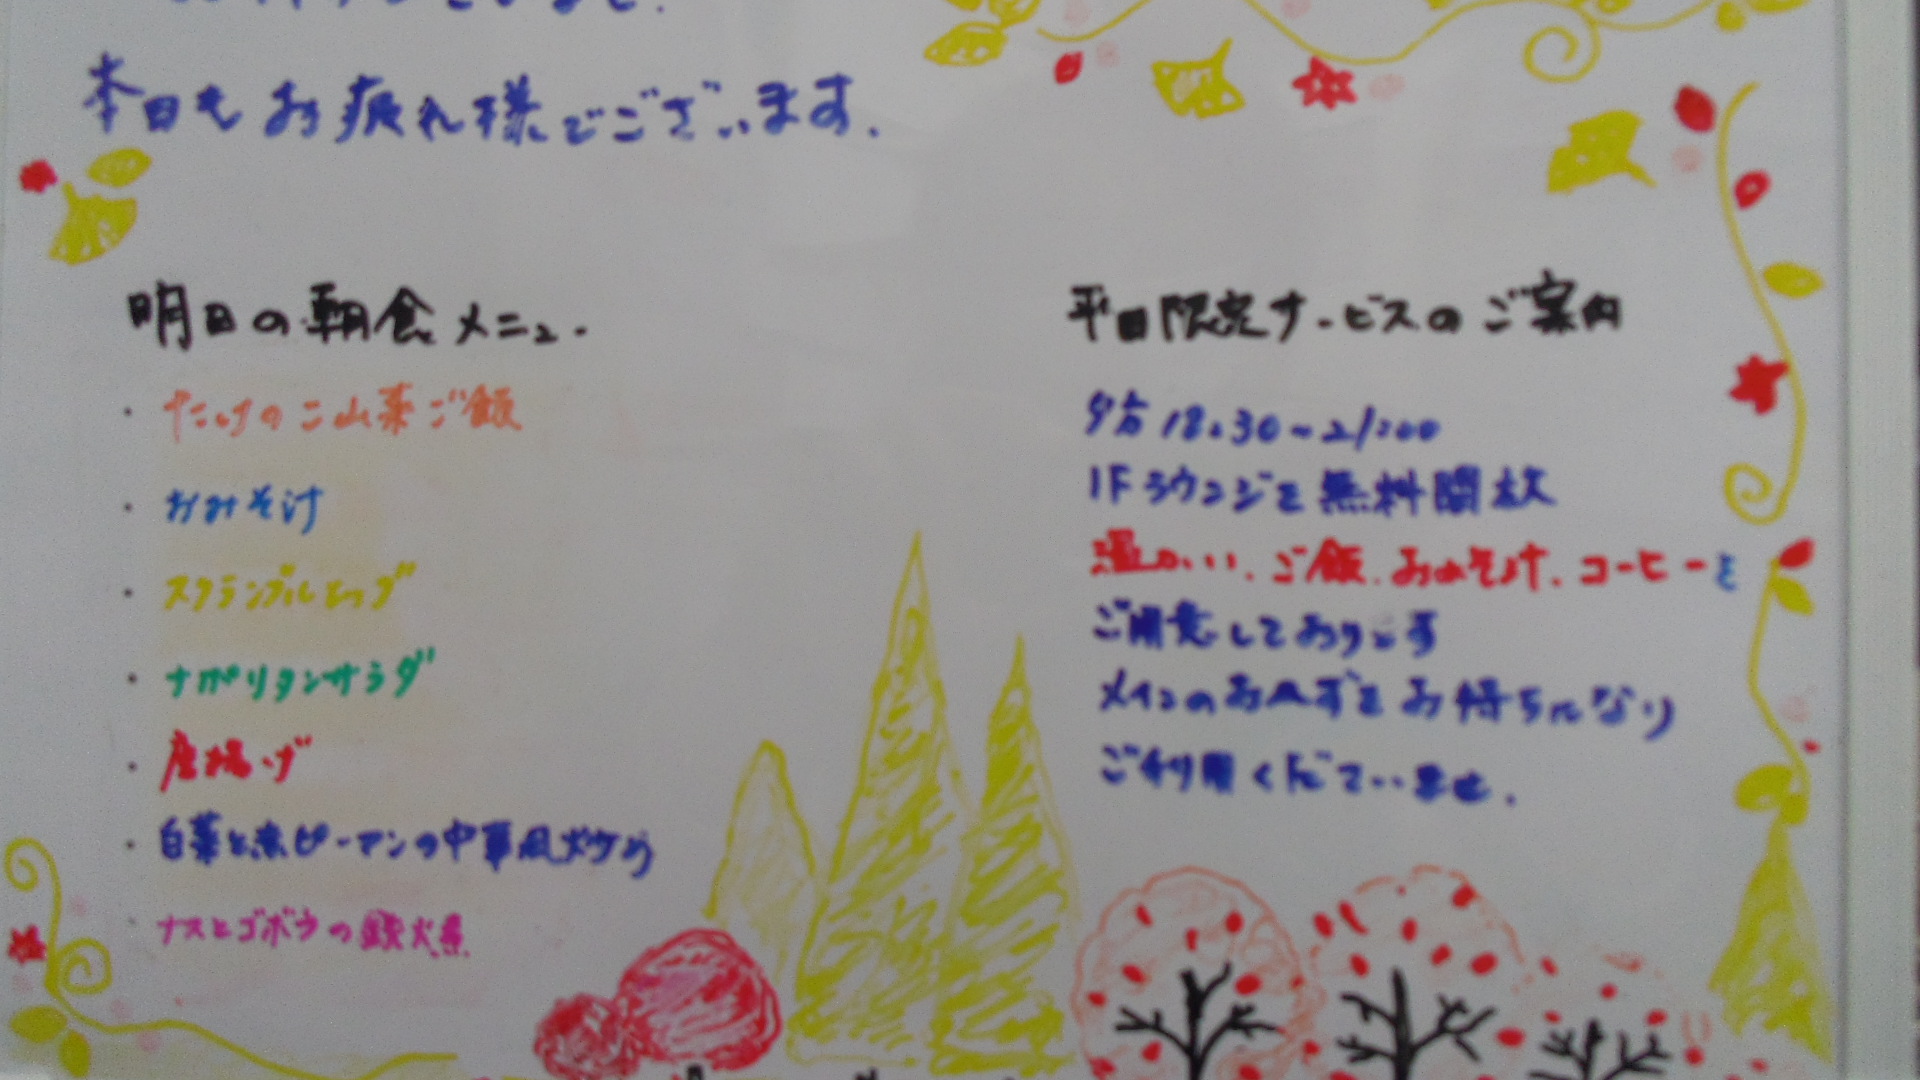 本日もお疲れ様でございます.
明日の朝食メニュー
・たけのこ山菜ご飯
・おみそ汁
・スクランブルエッグ
・ナポリタンサラダ
・唐揚げ
・白菜と赤ピーマンの中華風炒め
・ナスとゴボウの
平日限定サービスのご案内
夕方18:30~21:00
1Fラウンジを無料開放
温かい、ご飯、おみそ汁、コーヒーを
ご用意しております
メインのおかずをお持ちになり
ご利用くださいませ.